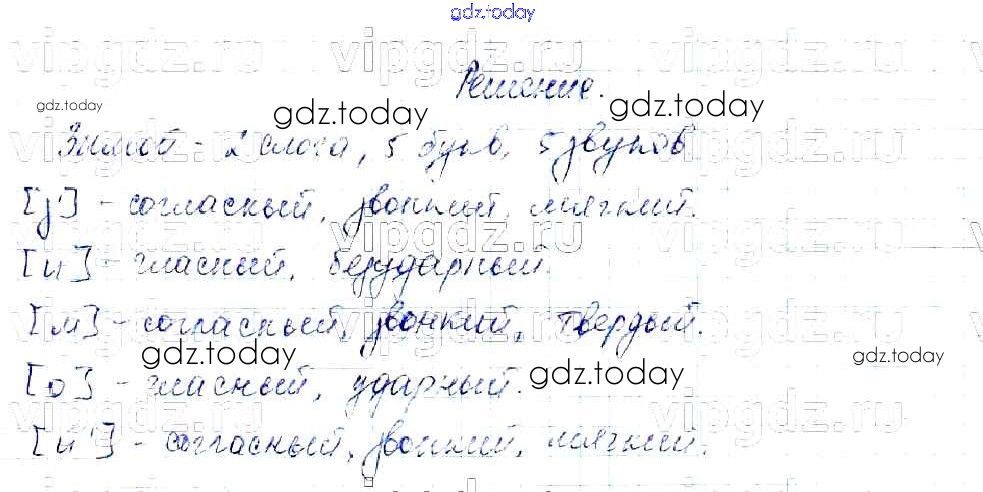 gdz.today
vipgdz.ru vipgdz.ru vipgdz.ru
Решение.
gdz.today gdz.today gdz.today
Зимой - 2 слога, 5 букв, 5 звуков
[з'] - согласный, звонкий, мягкий.
vipgdz.ru vipgdz.ru vipgdz.ru
[и] - гласный, безударный.
[м] - согласный, звонкий, твердый.
gdz.today gdz.today gdz.today
[о] - гласный, ударный.
vipgdz.ru vipgdz.ru vipgdz.ru
[й'] - согласный, звонкий, мягкий.